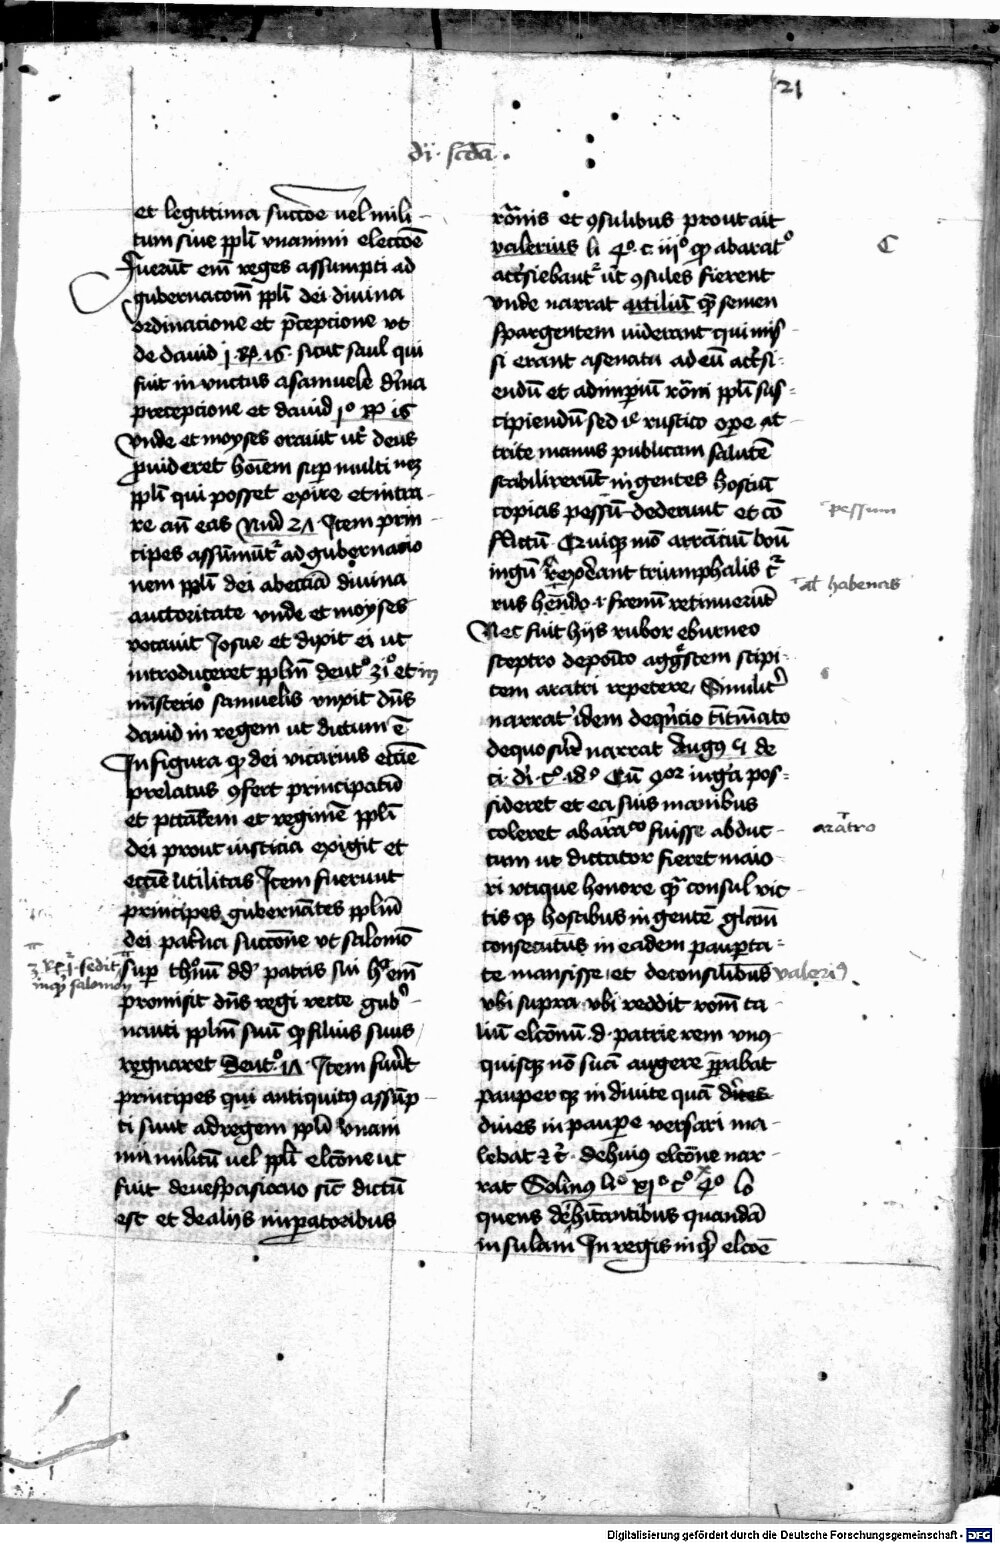 21
di. scda.
et legittima succoe uel mili
tum siue ppli vnanimi electoe
Fuerut em reges assumpti ad
gubernacom ppli dei diuina
ordinacione et pcepcione vt
de dauid j. Rp. 16. sicut saul qui
fuit in vnctus a samuele diuina
precepcione et dauid jo Rp 16
Vnde et moyses orauit ut deus
puideret hoiem sup multi
ppli qui posset exire et intra
re an eas Nud 27 Item prin
cipes assumutr ad gubernacio
nem ppli dei diuina
auctoritate vnde et moyses
vocauit Josue et dixit ei ut
introduceret pplm deuto 31o et in
misterio samuelis vnxit dns
dauid in regem ut dictum e
In figura q dei vicarius eccie
prelatus 9fert principatu
et ptatem et regime ppli
dei prout iusticia exigit et
eccie utilitas Item fuerunt
principes gubernates pplm
dei patna succone vt salomo
3 Rp. j. sedit
inqp salomon
sup thonu dd patris sui hc em
promisit dns regi recte gub
nanti pplm suu q filius suus
regnaret Deuto 17. Item funt
principes qui antiquit9 assup
ti sunt ad regem ppli vnani
mi militu uel ppli elcone ut
fuit de uespasiano sic dictu
est et de alijs inpatoribus
romis et 9sulibus prout ait
valerius li 4o. c. iijo q ab arato
accsiebantr ut 9sules fierent
C
vnde narrat atiliu q semen
spargentem uiderant qui mis
si erant a senatu ad eu accsi
endu et ad inperiu romi ppli sus
cipiendu sed ie rustico ope at
trite manus publicam salute
stabilirerut ingentes hostiu
copias pessu dederunt et co
pessum
fectu. Q uiq mo arratiu bou
ingu rexerant triumphalis cr
al habenas
rus hendo. i. frenu retinuerut
Nec fuit hijs rubor eburneo
sceptro deposito agrestem stipi
tem aratri repetere, Similitr
narrat idem de qntio
de quo sir narrat Aug9 5 de
ci. di. co. 18o. Cu 4or iugera pos
sideret et ea suis manibus
coleret ab aratro fuisse abduc
aratro
tum ut dictator fieret maio
ri vtique honore q consul vic
tis q hostibus ingente glam
consecutus in eadem paupta
te mansisse, et de consulibus valeri9
vbi supra vbi reddit rom ca
liu elconu. d. patrie rem vnus
quisq no sua augere pperabat
pauper q in diuite qua
diues in paupe versari ma
lebat etc. de hui9 elcone nar
rat Solin9 lio xjo co 4o lo
quens de hitantibus quanda
insulam In regis inq elcoe
Digitalisierung gefördert durch die Deutsche Forschungsgemeinschaft - DFG